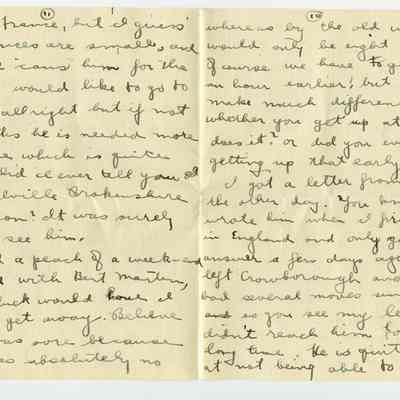 11
France, but I guess
nces are small, and
"cans" him for the
would like to go to
all right but if not
he is needed more
which is quite
Did I ever tell you I
lville Brokenshire
on? It was surely
see him.
a peach of a week-end
with Bert Martin,
luck would have it
get away. Believe
was sore because
absolutely no
whereas by the old w
would only be eight
Of course we have to g
an hour earlier, but
make much differen
whether you get up at
does it? or did you ev
getting up that early
I got a letter from
the other day. You kn
wrote him when I fir
in England and only go
answer a few days ag
left Crowborough and
had several moves sin
and so you see my le
didn't reach him for
long time. He is quit
at not being able to